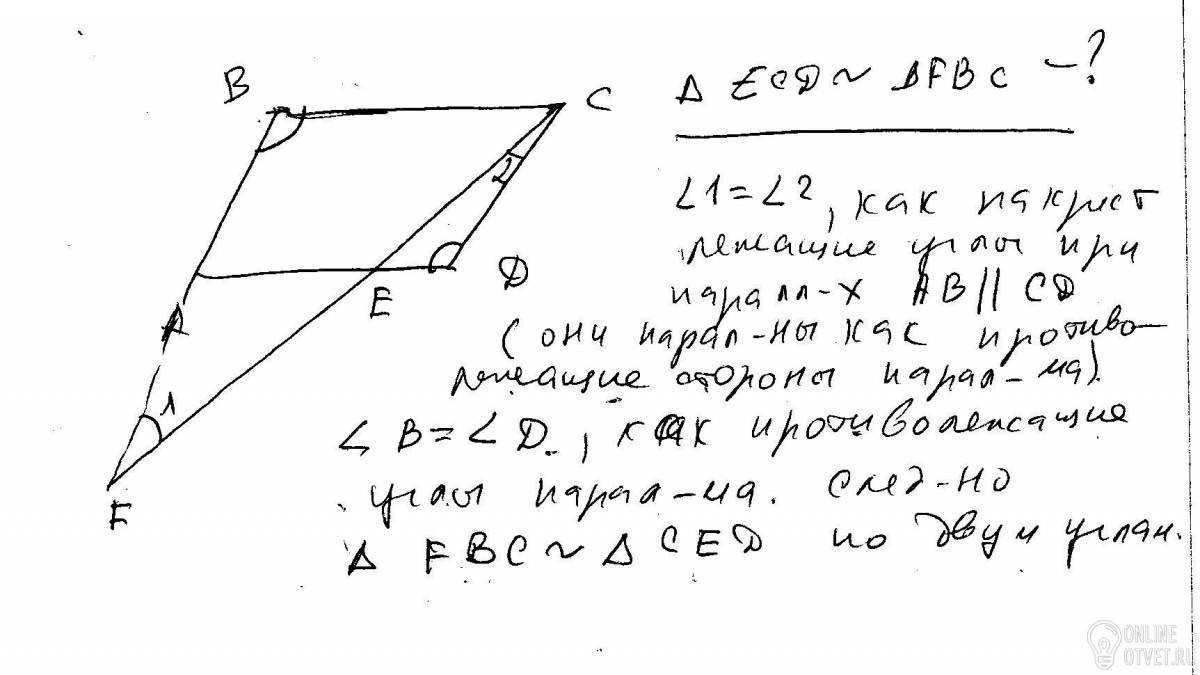 B
C
A
E
D
F
1
2
Δ ECD ~ ΔFBC – ?
∠1 = ∠2, как накрест
лежащие углы при
паралл-х AB || CD
(они парал-ны как противо-
лежащие стороны парал-ма).
∠ B = ∠ D., как противолежащие
углы парал-ма. След-но
Δ FBC ~ Δ CED по двум углам.
ONLINE
OTVET.RU